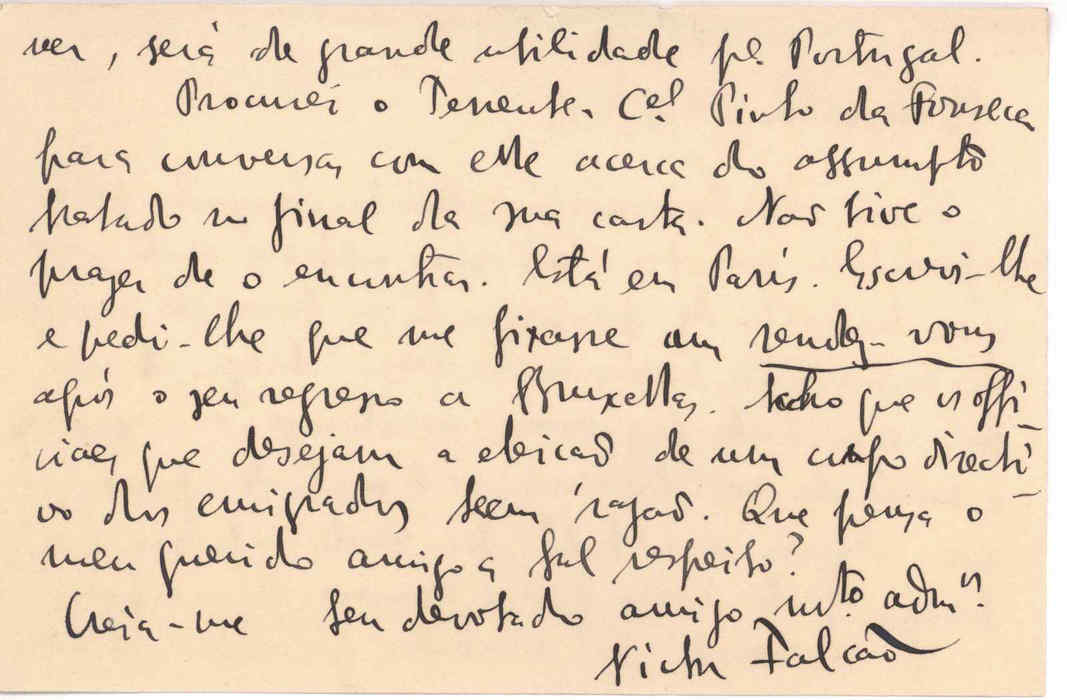 ver, será de grande utilidade pª Portugal.
Procurei o Tenente-Cel Pinto da Fonseca
para conversar com elle acerca do assumpto
tratado no final da sua carta. Não tive o
prazer de o encontrar. Está em Paris. Escrevi-lhe
e pedi-lhe que me fixasse um rendez-vous
após o seu regresso a Bruxellas. Acho que os offi-
ciaes que desejam a eleição de um corpo directi-
vo dos emigrados teem razão. Que pensa o
meu querido amigo a tal respeito?
Creia-me seu devotado amigo mto admor
Victor Falcão